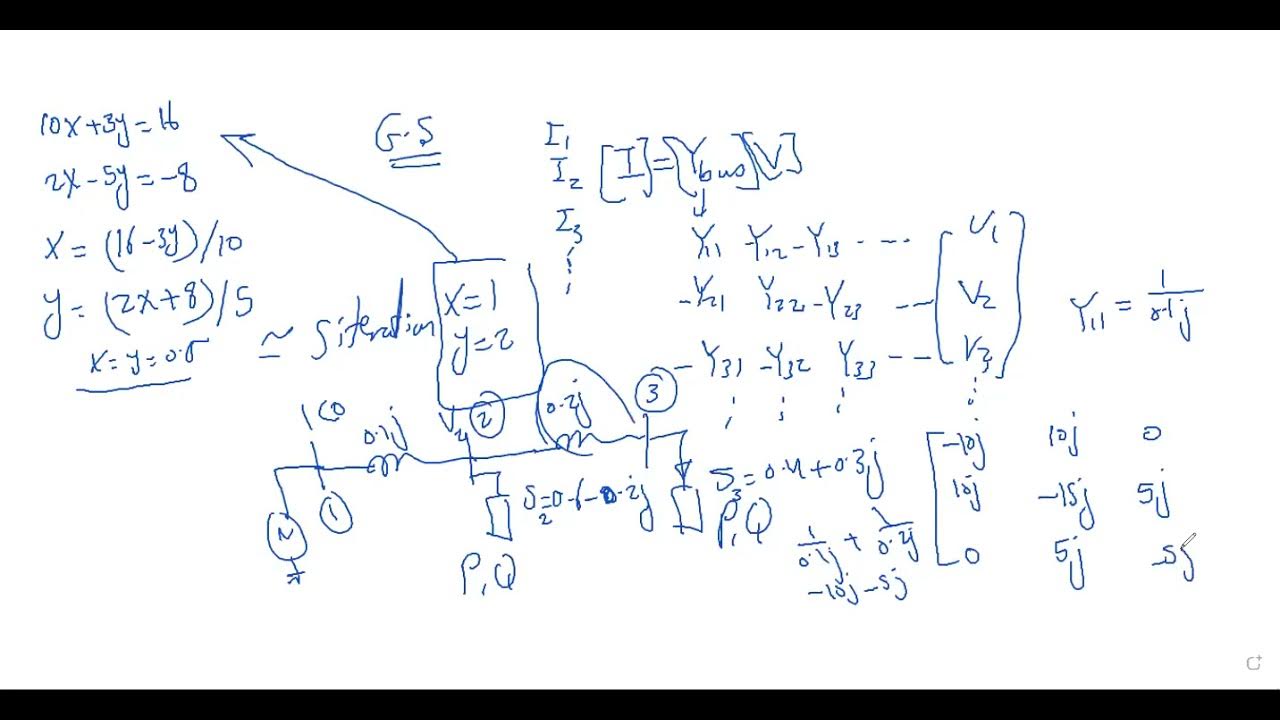 10x+3y=16
2x-5y=-8
x=(16-3y)/10
y=(2x+8)/5
x=y=0.5
≃ 5 iteration
x=1
y=2
G.S
I1
I2
I3
[I]=[Ybus][V]
Y11 Y12 -Y13 ----
-Y21 Y22 -Y23 ---
-Y31 -Y32 Y33 ---
V1
V2
V3
Y11 = 1/0.1j
0.1j
2
0.2j
3
1
S2=0.6-0.2j
P,Q
S3=0.4+0.3j
P,Q
1/0.1j + 1/0.2j
-10j-5j
-10j 10j 0
10j -15j 5j
0 5j -5j